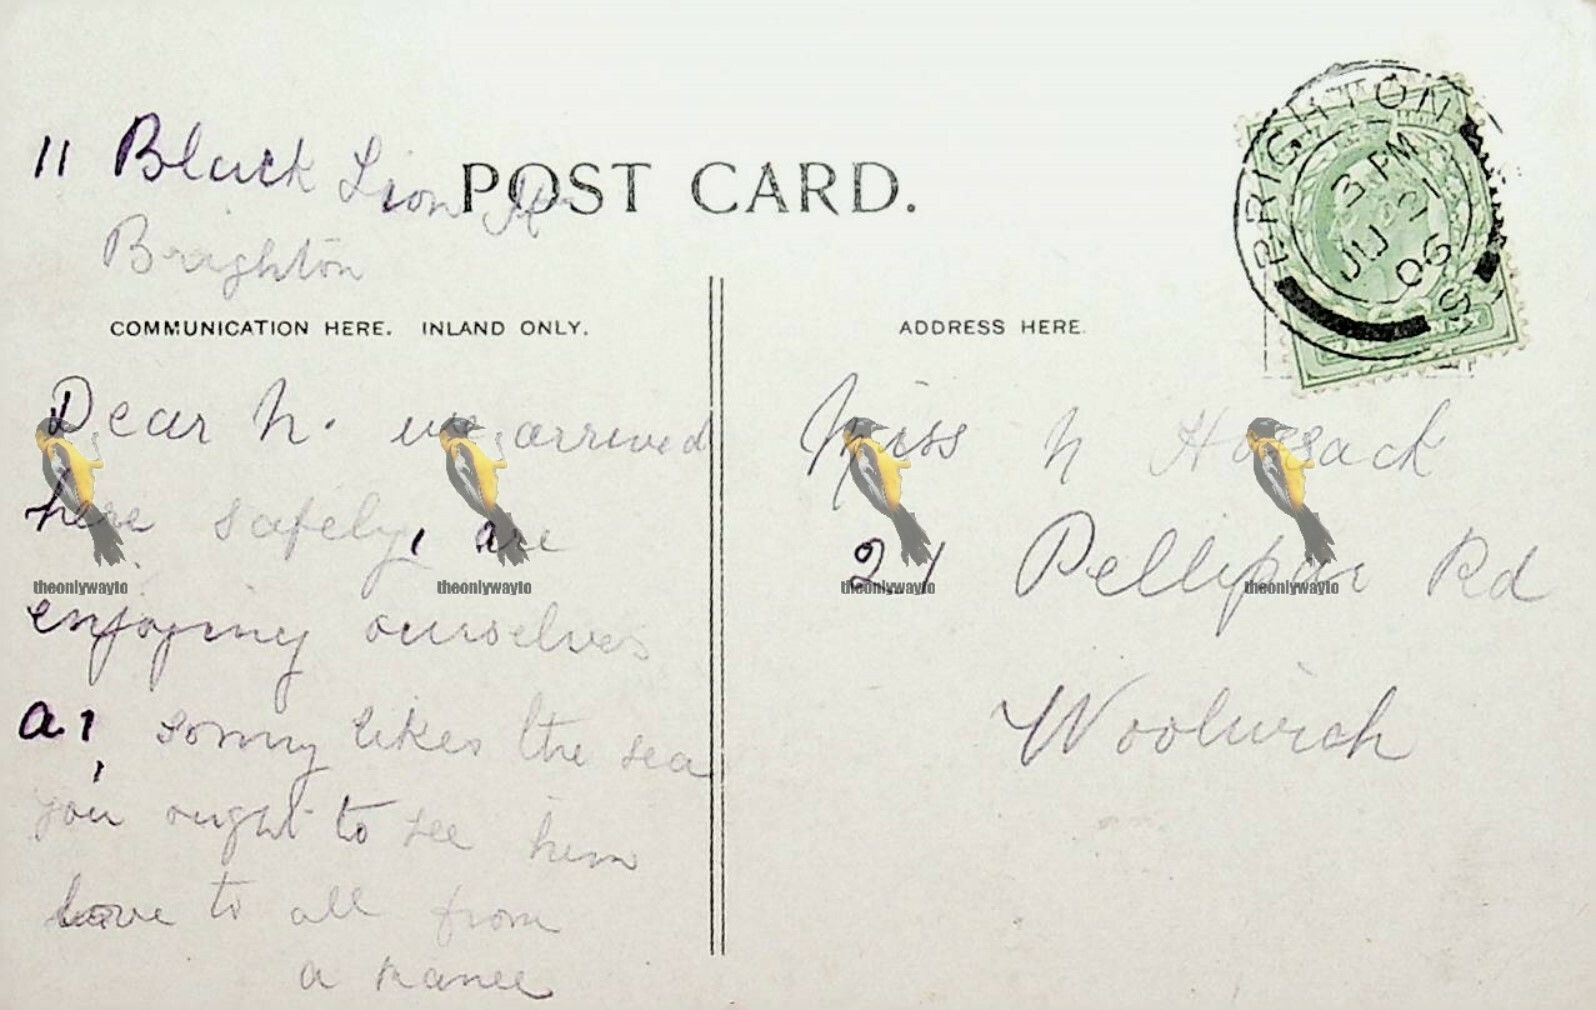 11 Black Lion St
Brighton
POST CARD.
BRIGHTON
3 PM
JU 21
06
COMMUNICATION HERE. INLAND ONLY.
ADDRESS HERE.
Dear N. we arrived
here safely, are
enjoying ourselves
A1, sonny likes the sea
you ought to see him
love to all from
a
Miss N Hossack
21 Pellipar Rd
Woolwich
theonlywayto
theonlywayto
theonlywayto
theonlywayto